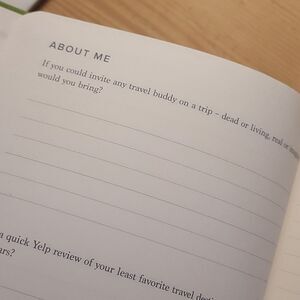 ABOUT ME
If you could invite any travel buddy on a trip – dead or living, real or
would you bring?
a quick Yelp review of your least favorite travel
ars?